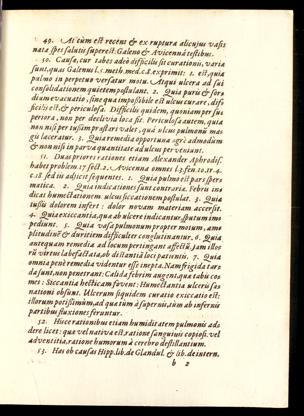 49. At cùm est recens & ex ruptura alicujus vasis
nata, spes salutis superest. Galeno & Avicennâ testibus.
50. Causæ, cur tabes adeò difficilis sit curationis, varia
sunt, quas Galenus l.5.meth.med.c.8.exprimit: 1. est, quia
pulmo in perpetuo versatur motu. Atqui ulcera ad sui
consolidationem quietem postulant. 2. Quia puris & sor-
dium evacuatio, sine qua impossibile est ulcus curare, dif-
ficilis est, & periculosa. Difficilis quidem, quoniam per su-
periora, non per declevia loca fit. Periculosa autem, quia
non nisi per tussim præstari valet, quâ ulcus pulmonû mà-
gis laceratur. 3. Quia remedia opportuna ægrè admodum
& non nisi in parva quantitate ad ulcus perveniunt.
51. Duas priores rationes etiam Alexander Aphrodis.
habet problem. 17 sect. 2. Avicenna omnes l.3. fen.10.tr.4.
c.18. sed iis adjicit sequentes. 1. Quia pulmo est pars sper-
matica. 2. Quia indicationes sunt contraria. Febris in-
dicat humectationem: ulcus siccationem postulat. 3. Quia
tussis dolorem infert: dolor novam materiam accersit.
4. Quia exiccantia, quæ ab ulcere indicantur, sputum im-
pediunt. 5. Quia vasa pulmonum propter motum, am-
plitudinẽ & duritiem difficulter conglutinantur. 6. Quia
antequam remedia ad locum pertingant affectũ, jam illo-
rũ virtus labefactata, ob distantiã loci patientis. 7. Quia
omnia posse remedia videntur esse inepta. Nam frigida tar-
da sunt, non penetrant: Calida febrim augent, quæ tabis co-
mes: Siccantia hecticam fovent: Humectantia ulceris sa-
nationi obsunt. Ulcerum siquidem curatio exiccatio est:
illorum potissimum, ad quæ tùm à supernis, tùm ab infernis
partibus fluxiones feruntur.
52. Hisce rationibus etiam humiditatem pulmonis ad-
dere licet: quæ vel nativa est, ratione sanguinis copiosi, vel
adventitia, ratione humorum à cerebro destillantium.
53. Has ob causas Hipp. lib. de Glandul. & lib. de intern.
b 2